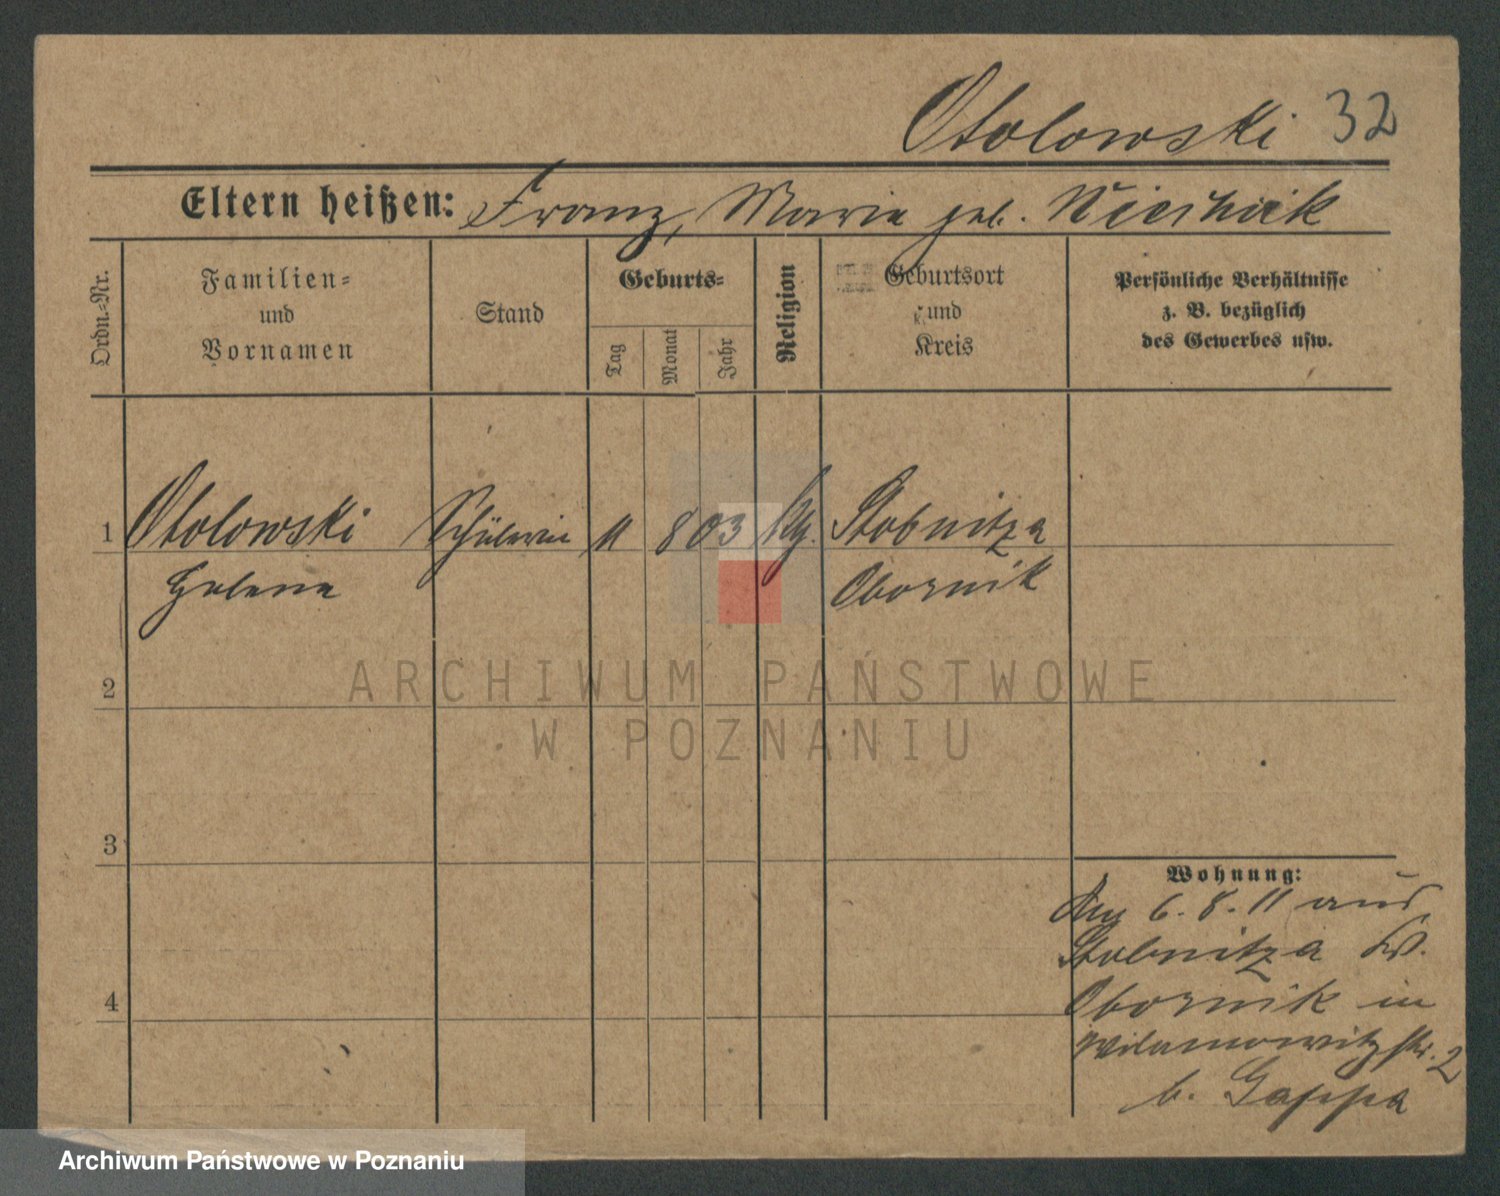 Otolowski 32
Eltern heißen: Franz, Marie geb.
Ordn.-Nr.
Familien-
und
Vornamen
Stand
Geburts-
Tag
Monat
Jahr
Religion
Geburtsort
und
Kreis
Persönliche Verhältnisse
z. B. bezüglich
des Gewerbes usw.
1 Otolowski Schülerin 11 8 03 Stobnitza
Helene Obornik
2
3
4
Wohnung:
6. 8. 11 aus
Stobnitza
Obornik in
Wilamowitzstr. 2
b. Gappa
ARCHIWUM PAŃSTWOWE
W POZNANIU
Archiwum Państwowe w Poznaniu